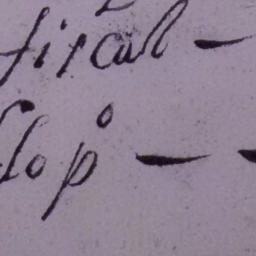 fiscal —
lop° — -